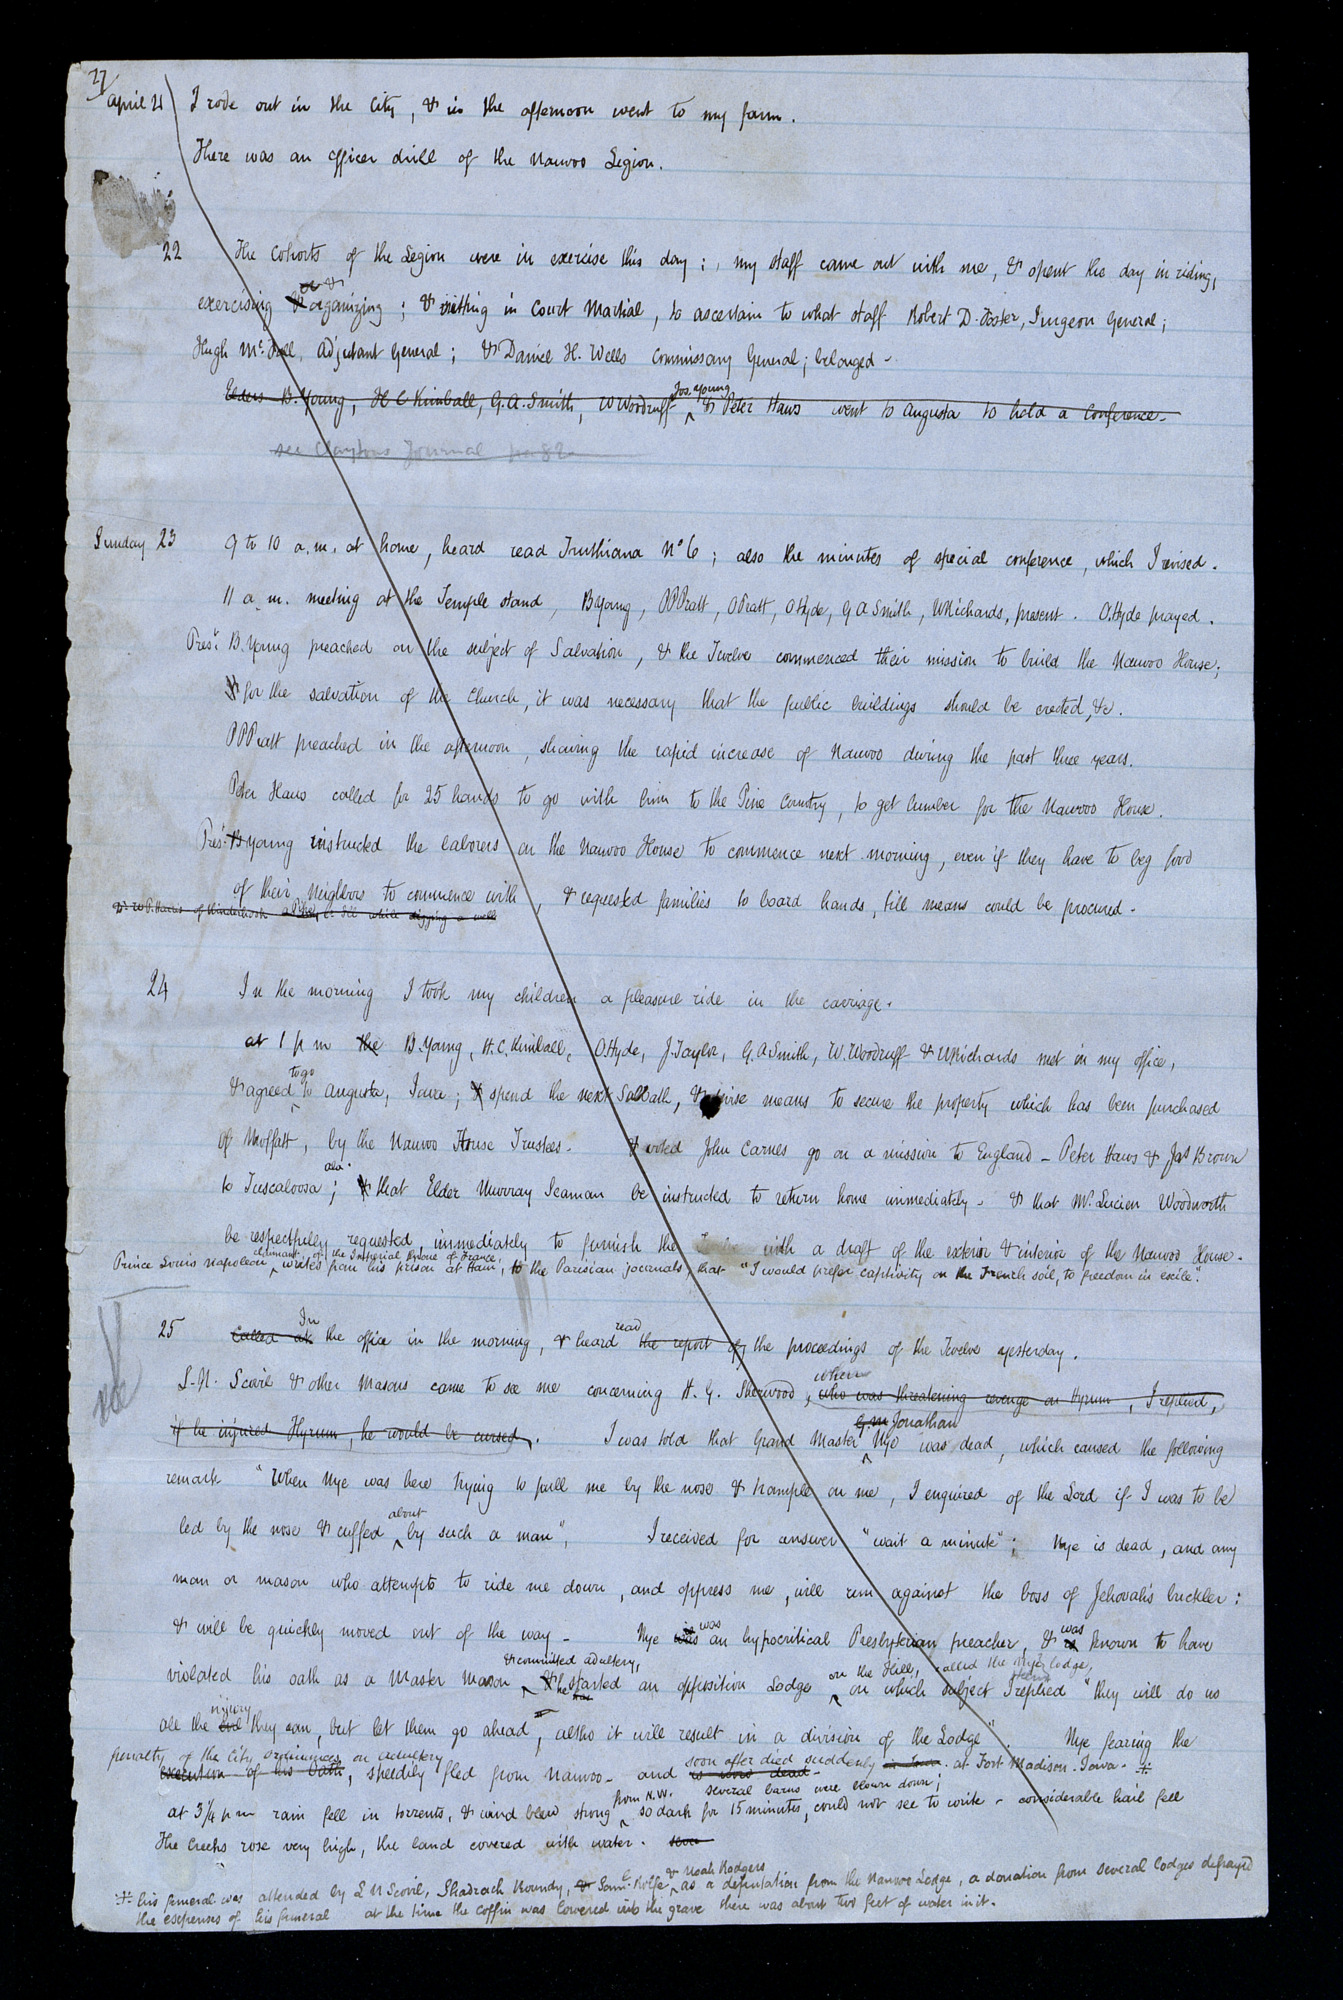 27
April 21 I rode out in the City, & in the afternoon went to my farm.
There was an officer drill of the Nauvoo Legion.
22 The Cohorts of the Legion were in exercise this day; my staff came out with me, & spent the day in riding,
or &
exercising & organizing; & sitting in Court Martial, to ascertain to what staff Robert D. Foster, Surgeon General;
Hugh McFall, Adjutant General; & Daniel H. Wells Commissary General; belonged -
Jos. Young
Elders B. Young, H C Kimball, G. A. Smith, W Woodruff & Peter Haws went to Augusta to hold a Conference.
see Claytons Journal pa 82
Sunday 23 9 to 10 a.m. at home, heard read Truthiana No 6; also the minutes of special conference, which I revised.
11 a.m. meeting at the Temple stand, B Young, P P Pratt, O Pratt, O Hyde, G A Smith, W Richards, present. O. Hyde prayed.
Prest B. Young preached on the subject of Salvation, & the Twelve commenced their mission to build the Nauvoo House;
& for the salvation of the Church, it was necessary that the public buildings should be erected, &c.
P P Pratt preached in the afternoon, shewing the rapid increase of Nauvoo during the past three years.
Peter Haws called for 25 hands to go with him to the Pine Country, to get lumber for the Nauvoo House.
Prest B Young instructed the laborers on the Nauvoo House to commence next morning, even if they have to beg food
of their Neighbors to commence with, & requested families to board hands, till means could be procured.
Mr W P Harris of Kinderhook a Pike Co Ill while digging a well
24 In the morning I took my children a pleasure ride in the carriage.
at 1 p m the B. Young, H. C. Kimball, O. Hyde, J. Taylor, G. A Smith, W. Woodruff & W Richards met in my office,
to go
& agreed to Augusta, Iowa; & spend the next Sabbath, & devise means to secure the property which has been purchased
of Moffatt, by the Nauvoo House Trustees. & voted John Carnes go on a mission to England - Peter Haws & Jas Brown
ala.
to Tuscaloosa; & that Elder Murray Seaman be instructed to return home immediately - & that Mr Lucien Woodworth
be respectfully requested, immediately to furnish the with a draft of the exterior & interior of the Nauvoo House -
claimant of the Imperial throne of France,
Prince Louis Napoleon writes from his prison at Ham, to the Parisian journals, that "I would prefer captivity on the French soil, to freedom in exile".
In read
25 Called at the office in the morning, & heard the report of the proceedings of the Twelve yesterday.
when
L. N. Scovil & other Masons came to see me concerning H. G. Sherwood, who was threatening revenge on Hyrum, I replied,
G. M Jonathan
if he injured Hyrum, he would be cursed. I was told that Grand Master Nye was dead, which caused the following
remark "When Nye was here trying to pull me by the nose & trample on me, I enquired of the Lord if I was to be
about
led by the nose & cuffed by such a man", I received for answer "wait a minute"; Nye is dead, and any
man or mason who attempts to ride me down, and oppress me, will run against the boss of Jehovah's buckler;
& will be quickly moved out of the way -
was was
Nye was an hypocritical Presbyterian preacher, & is known to have
& committed adultery, on the Hill, called the Nye Lodge,
violated his oath as a Master Mason & he started an opposition Lodge on which subject I replied "they will do us
injury
all the evil they can, but let them go ahead, altho it will result in a division of the Lodge". Nye fearing the
penalty of the City ordinances on adultery soon after died suddenly in Iowa at Fort Madison. Iowa - *
execution of his Oath, speedily fled from Nauvoo - and is now dead -
from N.W. several barns were blown down;
at 3¼ p m rain fell in torrents, & wind blew strong so dark for 15 minutes, could not see to write - considerable hail fell
The Creeks rose very high, the land covered with water.
& Noah Rodgers
* his funeral was attended by L N Scovil, Shadrach Roundy, & Saml Rolfe as a deputation from the Nauvoo Lodge, a donation from several lodges defrayed
the expenses of his funeral at the time the coffin was lowered into the grave there was about two feet of water in it.